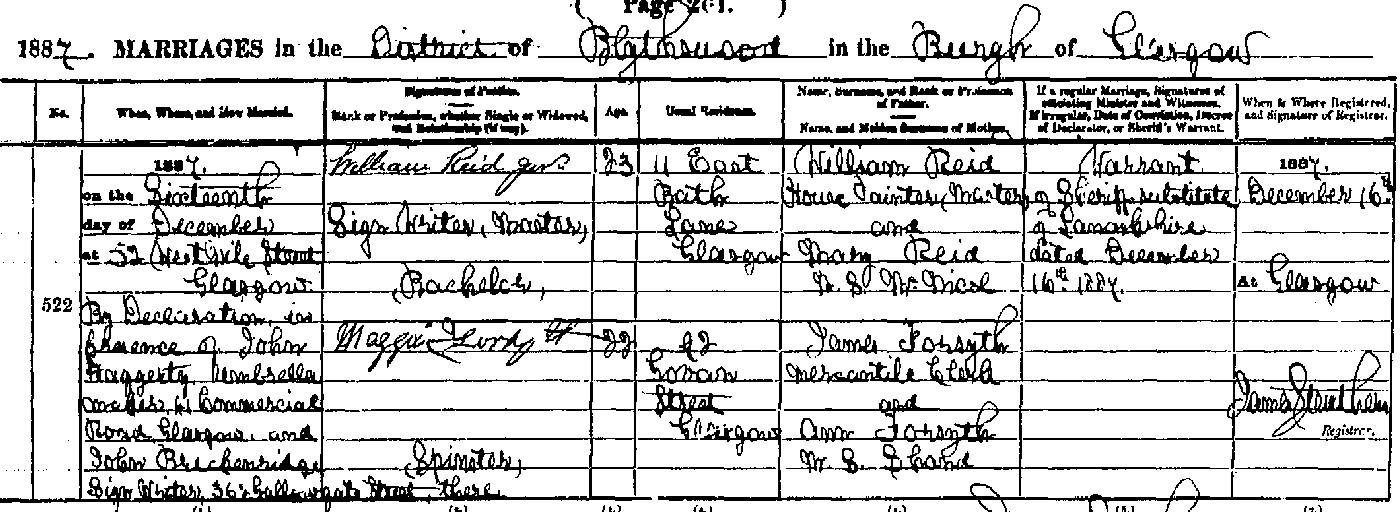 Page 261.
1887. MARRIAGES in the District of Blythswood in the Burgh of Glasgow
No.
When, Where, and How Married.
Signatures of Parties.
Rank or Profession, whether Single or Widowed, and Relationship (if any).
Age.
Usual Residence.
Name, Surname, and Rank or Profession of Father.
Name, and Maiden Surname of Mother.
If a regular Marriage, Signatures of officiating Minister and Witnesses.
If irregular, Date of Conviction, Decree of Declarator, or Sheriff's Warrant.
When & Where Registered, and Signature of Registrar.
522
1887.
on the Sixteenth
day of December
at 52 West Nile Street
Glasgow
By Declaration in
presence of John
Haggerty Umbrella
maker, Commercial
Road Glasgow, and
John Breckenridge
Sign Writer, Gallowgate Street, there
William Reid junr
Sign Writer, Master,
Bachelor,
Maggie Forsyth
Spinster,
23
22
11 East
Bath
Lane
Glasgow
92
Govan
Street
Glasgow
William Reid
House Painter, Master
and
Mary Reid
M. S. McNicol
James Forsyth
Mercantile Clerk
and
Ann Forsyth
M. S. Shand
Warrant
of Sheriff substitute
of Lanarkshire
dated December
16th 1887.
1887.
December 16th
At Glasgow
James Struthers
Registrar.